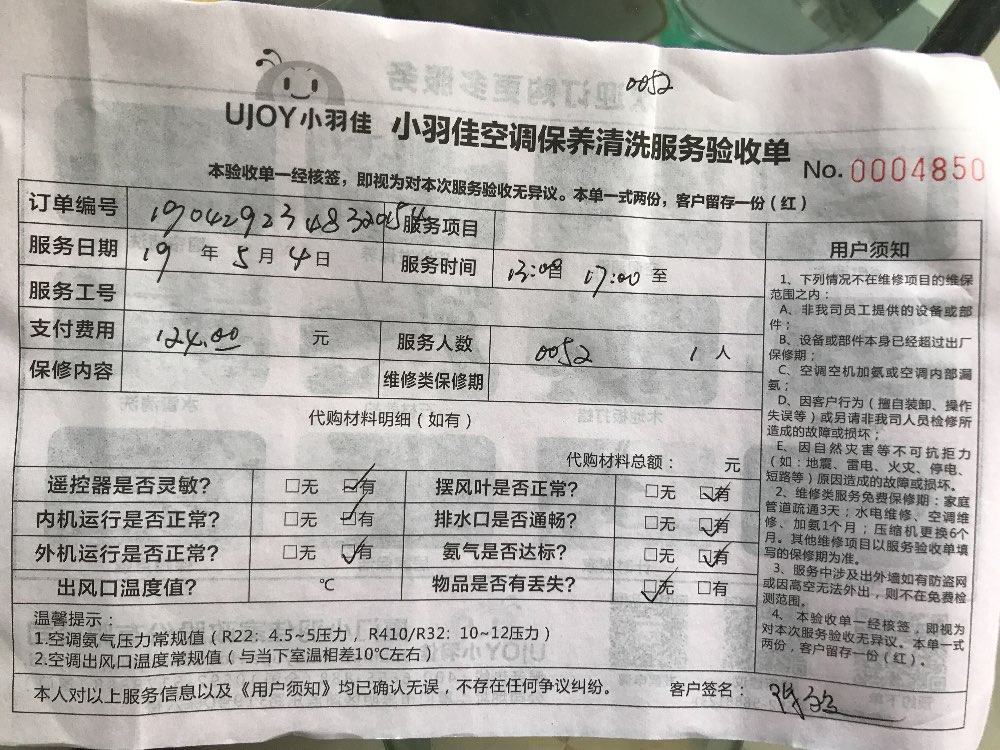 0052
UJOY小羽佳 小羽佳空调保养清洗服务验收单
No. 0004850
本验收单一经核签，即视为对本次服务验收无异议。本单一式两份，客户留存一份（红）
订单编号 服务项目
服务日期 19 年 5 月 4 日 服务时间 13:00 17:00 至
服务工号
支付费用 124.00 元 服务人数 0052 1 人
保修内容 维修类保修期
代购材料明细（如有）
代购材料总额： 元
遥控器是否灵敏? □无 □有 摆风叶是否正常? □无 □有
内机运行是否正常? □无 □有 排水口是否通畅? □无 □有
外机运行是否正常? □无 □有 氨气是否达标? □无 □有
出风口温度值? ℃ 物品是否有丢失? □无 □有
温馨提示：
1.空调氨气压力常规值（R22：4.5~5压力，R410/R32：10~12压力）
2.空调出风口温度常规值（与当下室温相差10℃左右）
本人对以上服务信息以及《用户须知》均已确认无误，不存在任何争议纠纷。 客户签名：
用户须知
1、下列情况不在维修项目的维保
范围之内：
A、非我司员工提供的设备或部
件；
B、设备或部件本身已经超过出厂
保修期；
C、空调空机加氨或空调内部漏
氨；
D、因客户行为（擅自装卸、操作
失误等）或另请非我司人员检修所
造成的故障或损坏；
E、因自然灾害等不可抗拒力
（如：地震、雷电、火灾、停电、
短路等）原因造成的故障或损坏。
2、维修类服务免费保修期：家庭
管道疏通3天；水电维修、空调维
修、加氨1个月；压缩机更换6个
月。其他维修项目以服务验收单填
写的保修期为准。
3、服务中涉及出外墙如有防盗网
或因高空无法外出，则不在免费检
测范围。
4、本验收单一经核签，即视为
对本次服务验收无异议。本单一式
两份，客户留存一份（红）。